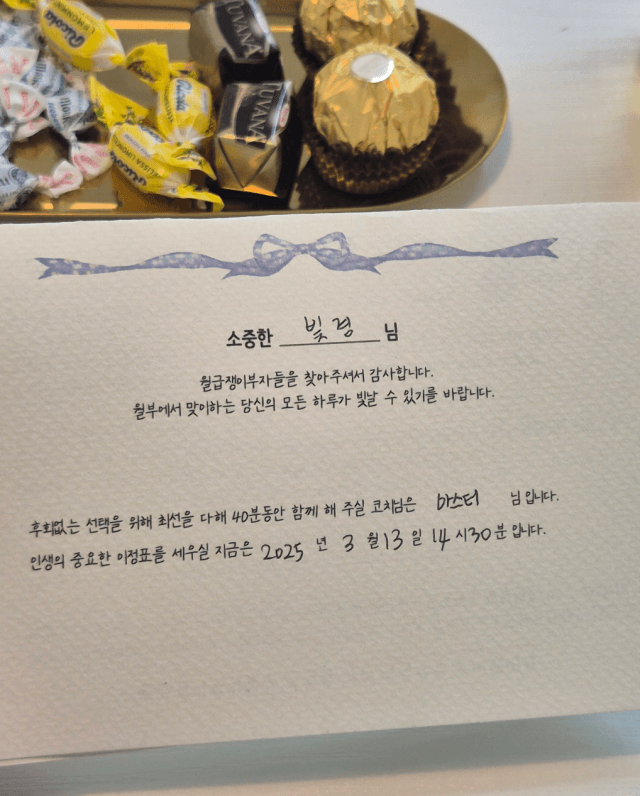 Ricola
Ricola
MELISSA LIMONCELLA
Ricola
소중한 빛경 님
월급쟁이부자들을 찾아주셔서 감사합니다.
월부에서 맞이하는 당신의 모든 하루가 빛날 수 있기를 바랍니다.
후회없는 선택을 위해 최선을 다해 40분동안 함께 해 주실 코치님은 마스터 님 입니다.
인생의 중요한 이정표를 세우실 지금은 2025 년 3 월 13 일 14 시 30 분 입니다.